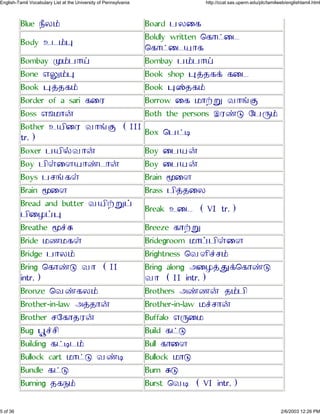 English-Tamil Vocabulary List at the University of Pennsylvania http://ccat.sas.upenn.edu/plc/tamilweb/englishtaml.html
Blue நீலம் Board பலகை
Body உடம்பு Boldly written கொட்டை கொட்டையாக
Bombay மும்பாய் Bombay பம்பாய்
Bone எலும்பு Book shop புத்தகக் கடை
Book புத்தகம் Book புஸ்தகம்
Border of a sari கரை Borrow கை மாற்று வாங்கு
Boss எஜமான் Both the persons இரண்டு பேரும்
Bother உயிரை வாங்கு ( III tr.) Box பெட்டி
Boxer பயில்வான் Boy பையன்
Boy பிள்ளையாண்டான் Boy பையன்
Boys பசங்கள் Brain மூளை
Brain மூளை Brass பித்தலை
Bread and butter வயிற்றுப் பிழைப்பு Break உடை ( VI tr.)
Breathe மூச்சு Breeze காற்று
Bride மணமகள் Bridegroom மாப்பிள்ளை
Bridge பாலம் Brightness வெளிச்சம்
Bring கொண்டு வா ( II intr.) Bring along அழைத்துக்கொண்டு வா ( II intr.)
Bronze வெண்கலம் Brothers அண்ணன் தம்பி
Brother-in-law அத்தான் Brother-in-law மச்சான்
Brother சகோதரன் Buffalo எருமை
Bug பூச்சி Build கட்டு
Building கட்டிடம் Bull காளை
Bullock cart மாட்டு வண்டி Bullock மாடு
Bundle கட்டு Burn சுடு
Burning தகரும் Burst வெடி ( VI intr.)
5 of 36 2/6/2003 12:28 PM